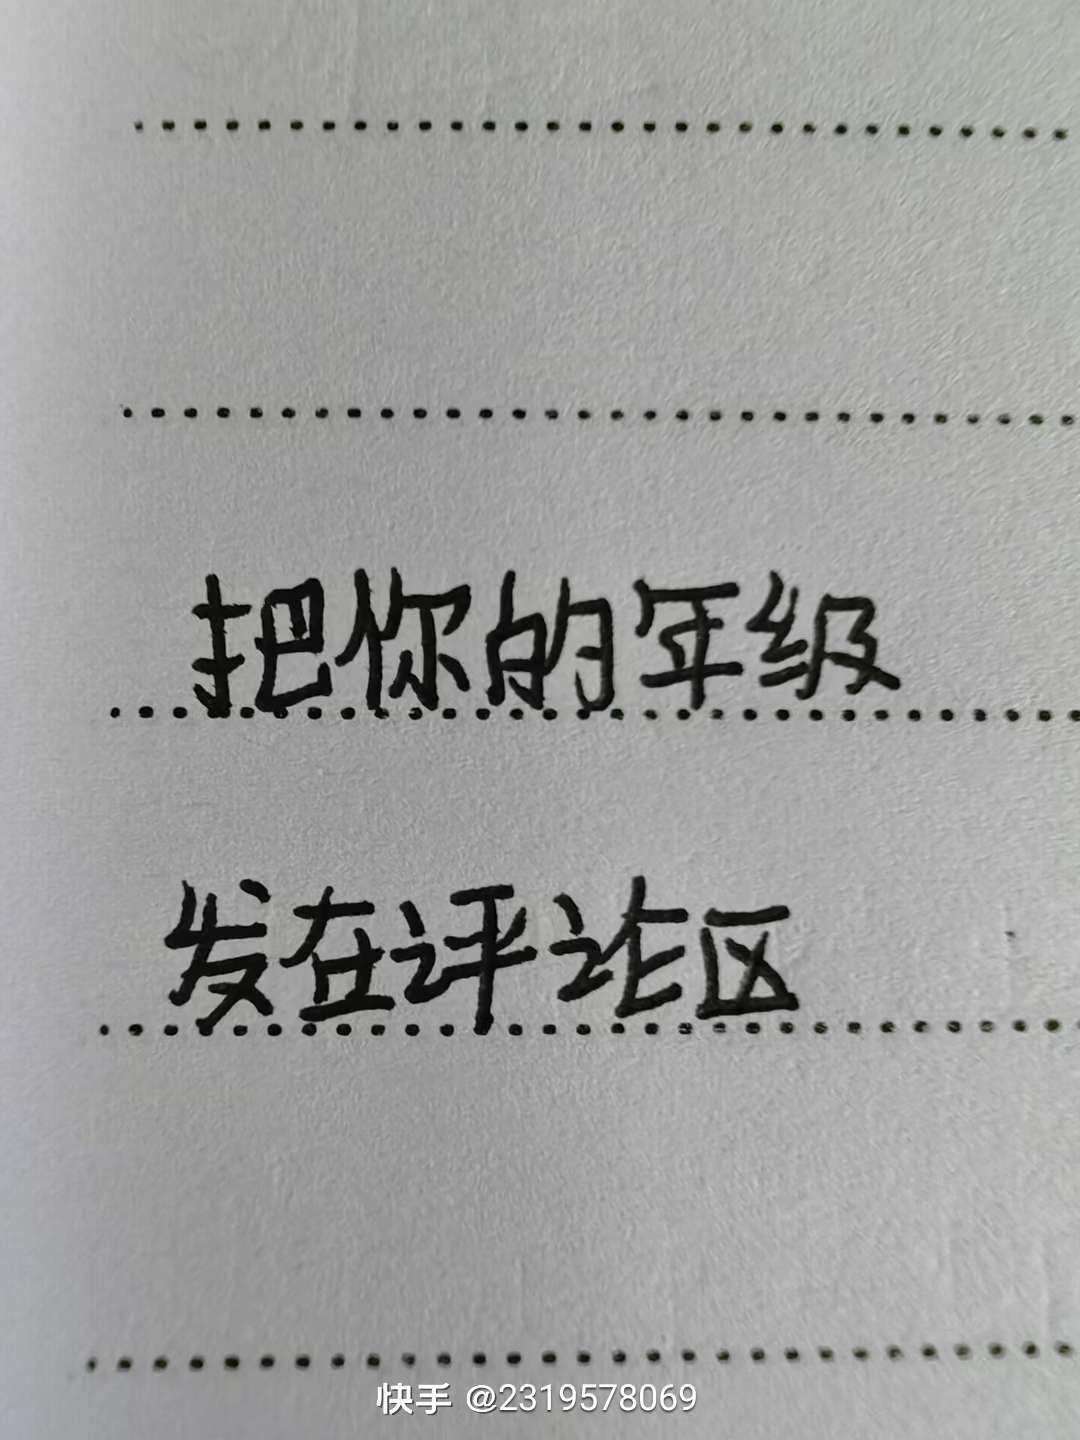 把你的年级
发在评论区
快手 @2319578069